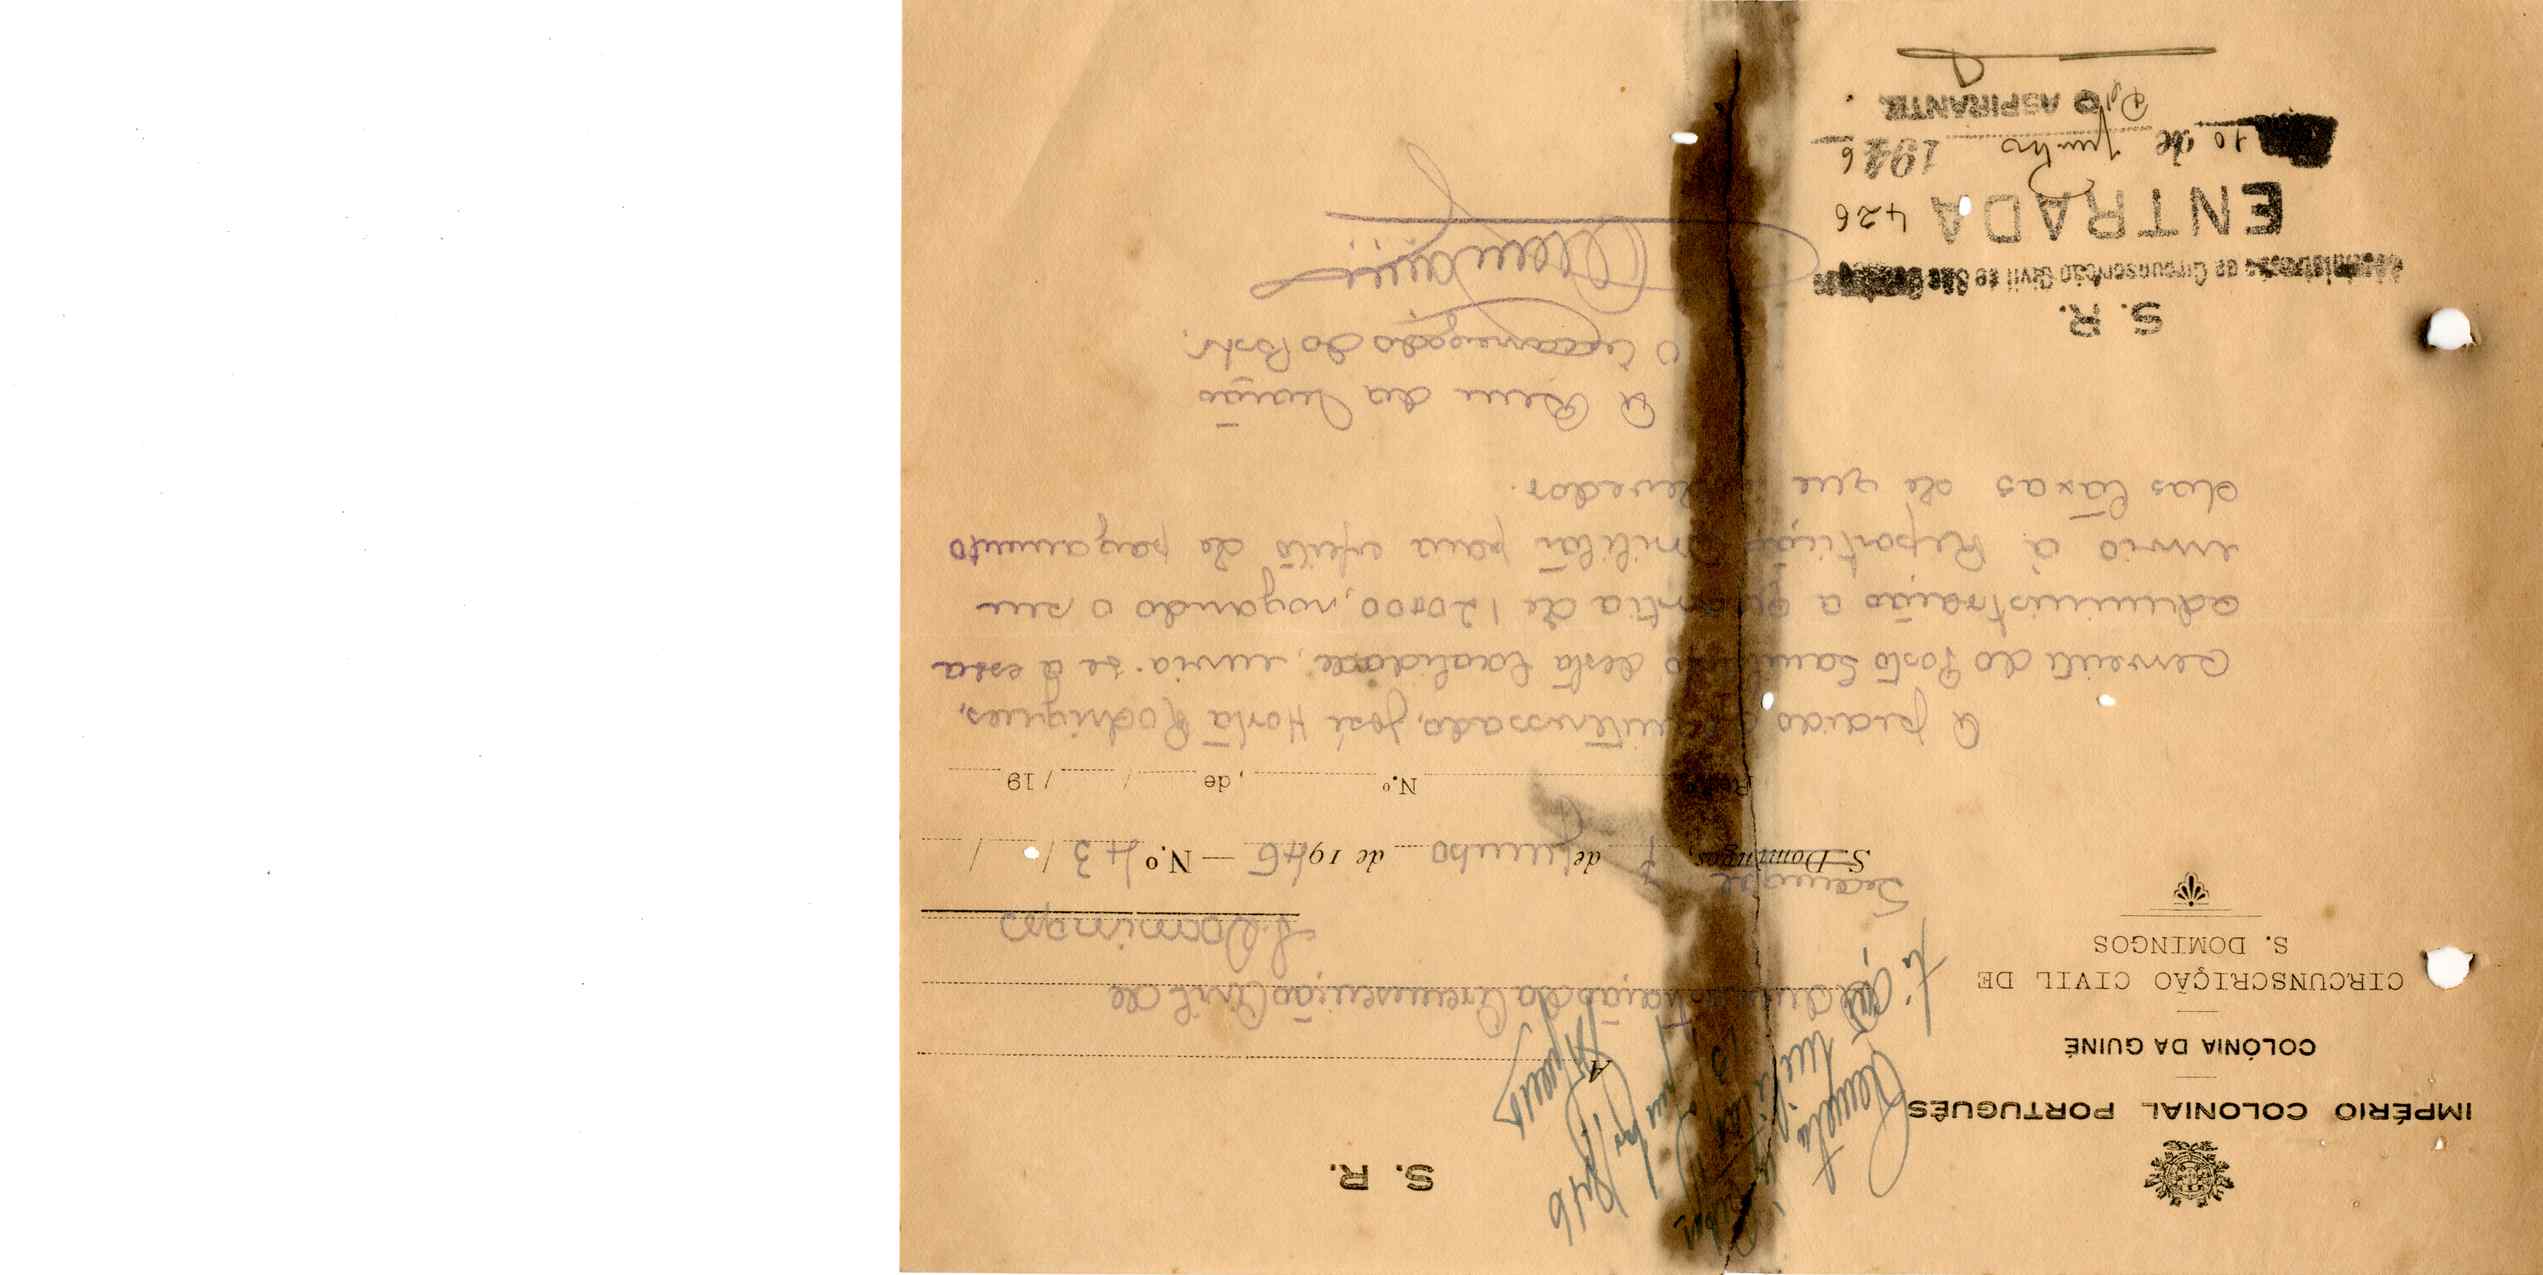 S. R.
IMPÉRIO COLONIAL PORTUGUÊS
COLÓNIA DA GUINÉ
CIRCUNSCRIÇÃO CIVIL DE
S. DOMINGOS
A
Administração da Circunscrição Civil de
S. Domingos
S. Domingos, 3 de Junho de 1946 — N.º 43 / /
N.º , de / / 19
A pedido do interessado, José Horta Rodrigues,
servente do Posto Sanitário desta localidade, envia-se a essa
administração a quantia de 120$00, rogando o seu
envio á Repartição Militar para efeito de pagamento
das taxas de que é devedor.
A Bem da Nação
O Encarregado do Posto,
S. R.
Administração da Circunscrição Civil de São Domingos
ENTRADA 426
10 de Junho 1946
O ASPIRANTE